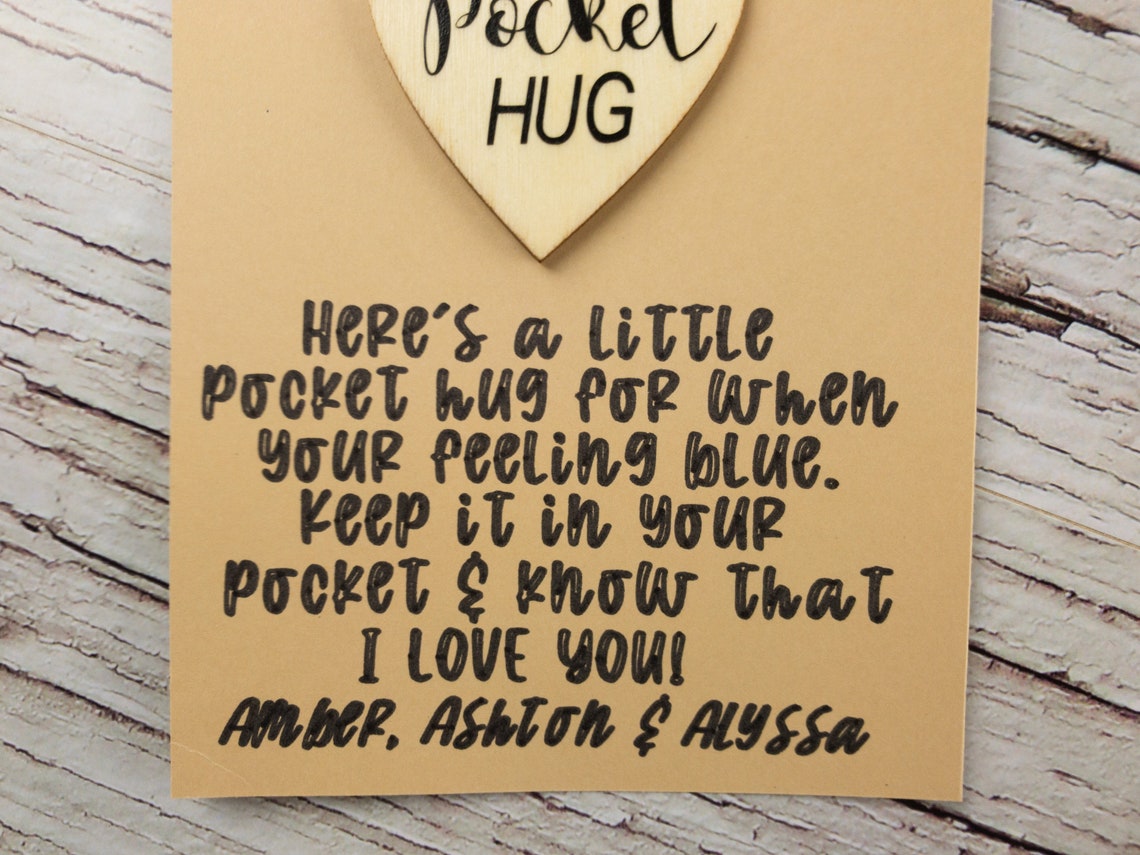 Pocket
HUG
Here's a little
pocket hug for when
your feeling blue.
Keep it in your
pocket & know that
I LOVE YOU!
Amber, Ashton & Alyssa